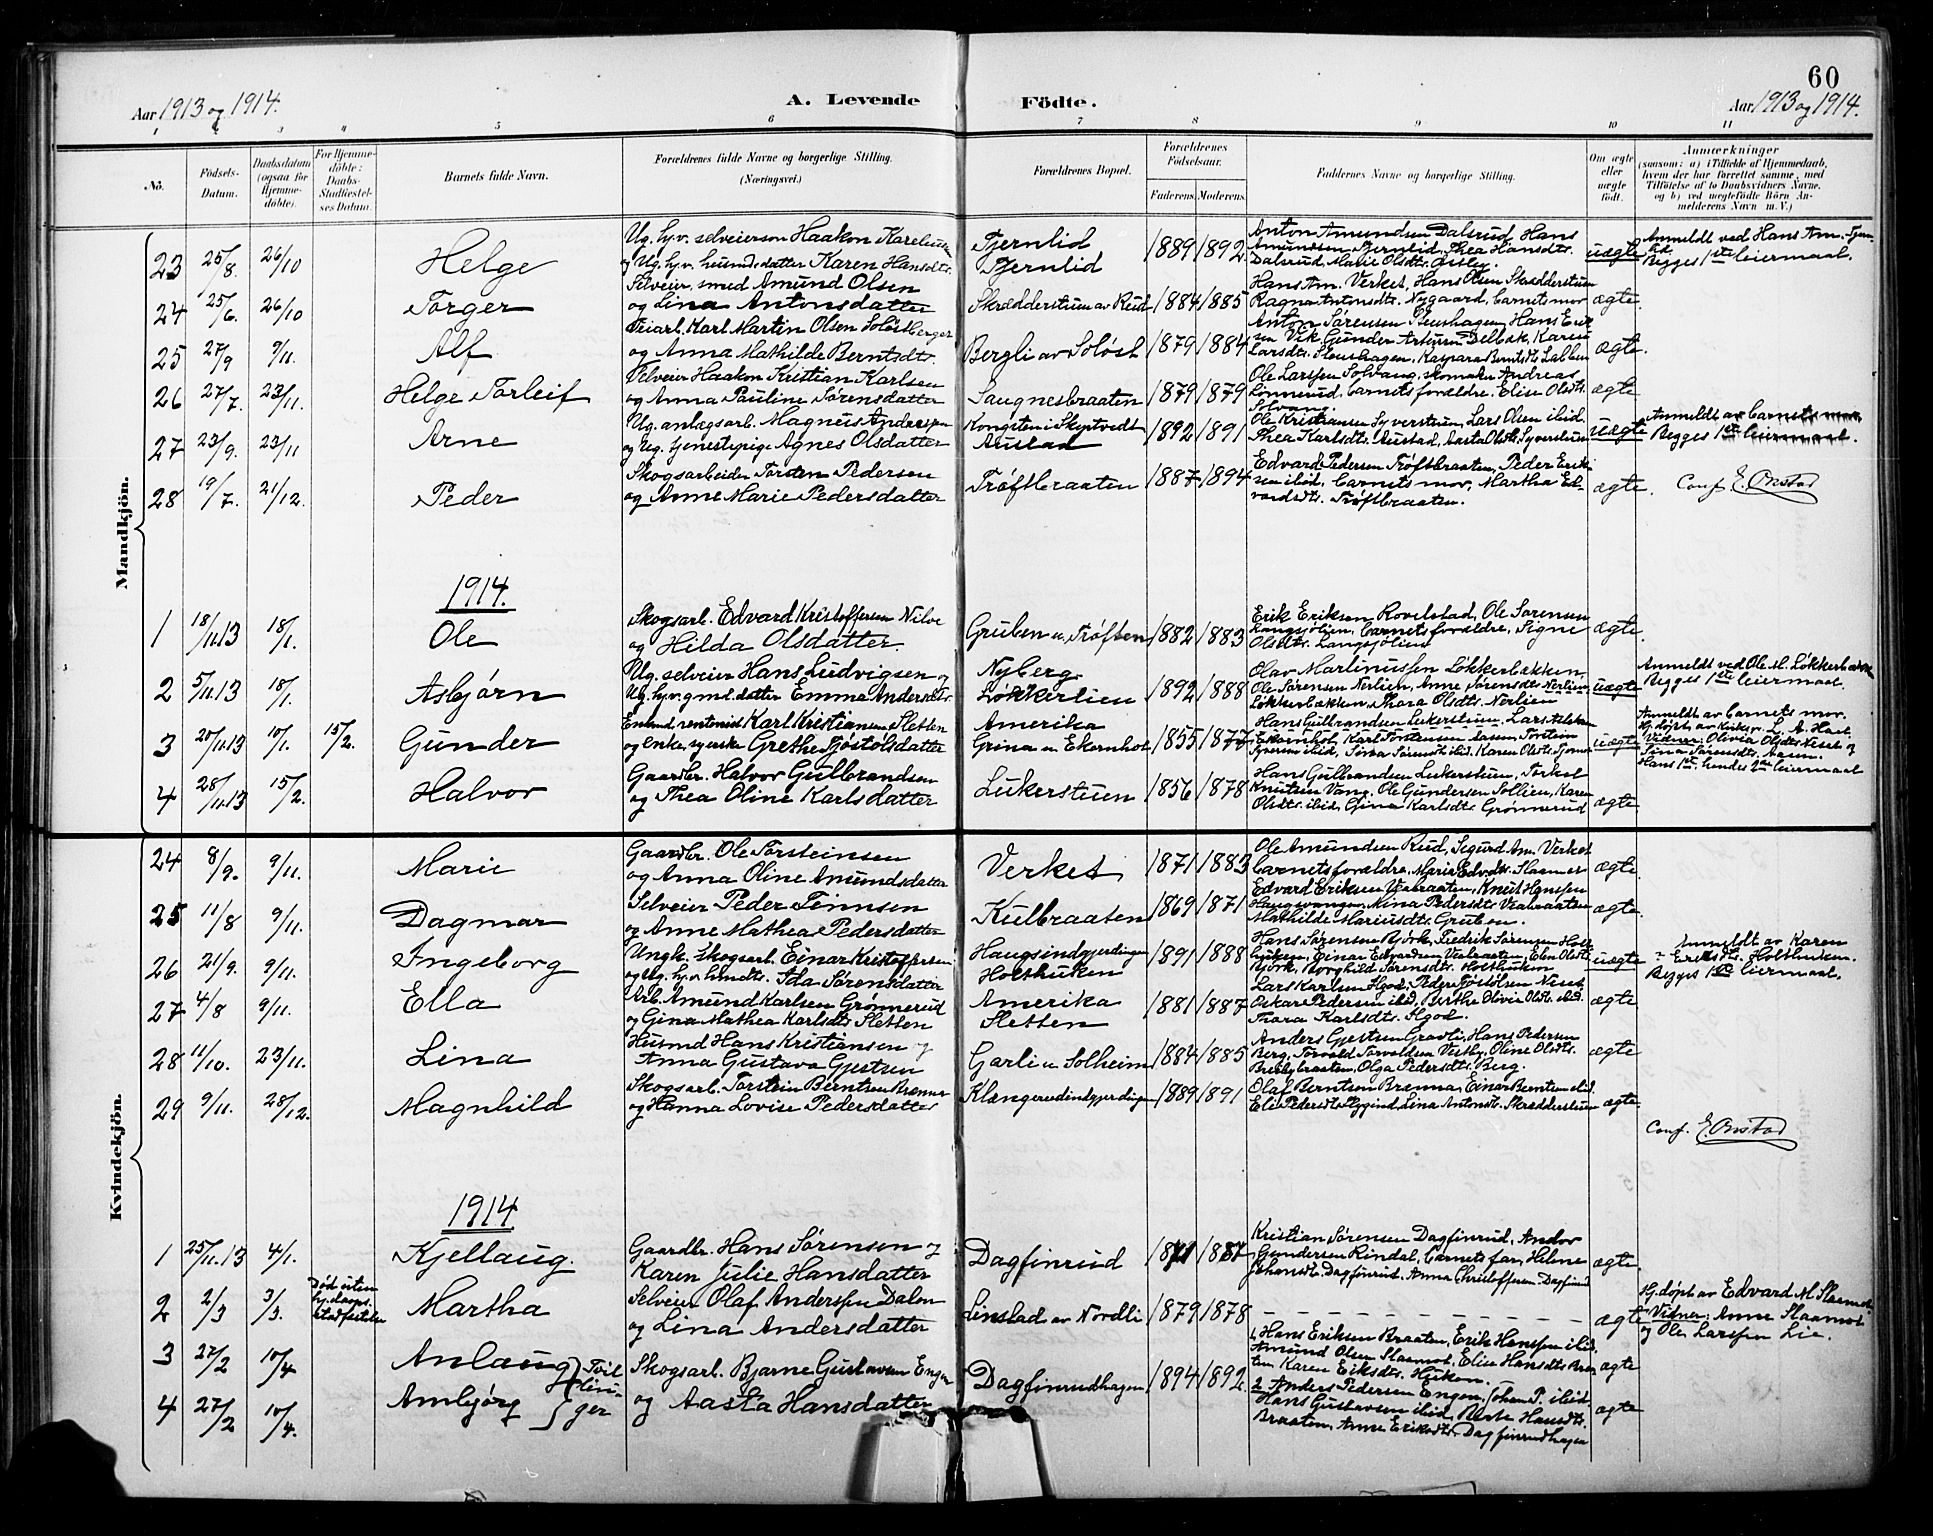 60
Aar 1913 og 1914.
A. Levende Födte.
Aar 1913 og 1914.
1 2 3 4 5 6 7 8 9 10 11
No.
Födsels-Datum.
Daabsdatum (ogsaa for Hjemmedöbte).
For Hjemmedöbte: Daabs-Stadfæstelses Datum.
Barnets fulde Navn.
Forældrenes fulde Navne og borgerlige Stilling. (Næringsvei.)
Forældrenes Bopæl.
Forældrenes Födselsaar.
Faderens. Moderens.
Faddernes Navne og borgerlige Stilling.
Om ægte eller uægte födt.
Anmærkninger (saasom: a) i Tilfælde af Hjemmedaab, hvem der har forrettet samme, med Tilföielse af to Daabsvidners Navne, og b) ved uægtefödte Börn Anmelderens Navn m. V.)
Mandkjön.
23 25/8. 26/10 Helge
Ug. hv. selveierson Haakon
og Ug. hv. husmdsdatter Karen Hansdtr.
Tjernlid
Tjernlid
1889 1892
Anton Amundsen Dalsrud, Hans
Amundsen Tjernlid, Thea Hansdtr.
Dalsrud, Marie Olsdtr.
uægte
Anmeldt ved Hans Am.
Begges 1ste leiermaal.
24 25/6. 26/10 Torger
Selveier, smed Amund Olsen
og Lina Antonsdatter
Skrædderstuen av Rud 1884 1885
Hans Am. Verket, Hans Olsen Skrædderstuen
Ragna Antonsdtr. Nygaard, barnets mor
ægte.
25 27/9 9/11. Alf
Karl Martin Olsen
og Anna Mathilde Berntsdtr.
Bergli av Soløst 1879 1884
Anton Sørensen Stenshagen, Hans Erik-
sen Vik, Gunder Delbæk, Karen
Larsdtr. Stenshagen, Kaspara Berntsdtr.
ægte.
26 27/7. 23/11. Helge Torleif
Selveier Haakon Kristian Karlsen
og Anna Pauline Sørensdatter
Saugnesbraaten 1879 1879
Ole Larssen Solvang, skomaker Andreas
barnets forældre, Elise Olsdtr.
Solvang.
ægte
27 23/9. 23/11 Arne
Ug. anlægsarb. Magnus Anderssen
og Ug. tjenestepige Agnes Olsdatter
Kongsten i Skiptvedt
Austad
1892 1891
Ole Kristiansen Syverstad, Lars Olsen ibid.
Thea Karlsdtr. Austad, Aasta Olsdtr. Syverstuen
uægte
Anmeldt av barnets mor
Begges 1ste leiermaal.
28 19/7. 21/12. Peder
Skogsarbeider Torsten Pedersen
og Anne Marie Pedersdatter
Trøftbraaten 1887 1894
Edvard Pedersen Trøftbraaten, Peder Erik-
sen ibid, barnets mor, Martha Ed-
vardsdtr. Trøftbraaten.
ægte.
Conf. E. Onstad
1914.
1 18/11.13 18/1. Ole
Skogsarb. Edvard Kristoffersen
og Hilda Olsdatter
Gruben u. Trøften 1882 1883
Erik Eriksen Rovelstad, Ole Sørensen
Langsjølien, barnets forældre, Signe
Olsdtr. Langsjølien
ægte.
2 5/11.13 18/1. Asbjørn
Ug. selveier Hans Ludvigsen og
Ug. hv. gmd. datter Emma Andersdtr.
Nyberg
Løkkerlien
1892 1888
Olav Martinussen Løkkerbakken,
Ole Sørensen Nerlien, Anne Sørensdtr. Nerlien,
Løkkerbakken, Thora Olsdtr. Nerlien
uægte
Anmeldt ved Ole M. Løkkerbakken
Begges 1ste leiermaal.
3 20/11.13 10/1. 15/2. Gunder
Karl Kristiansen Sletten
og enke, syerske Grethe Tjøstolsdatter
Amerika
Grina u Ekornhol
1855 1877
Hans Gulbrandsen Lukerstuen, Lars
Ekornhol, Karl Torstensen Aasen, Torstein
ibid, Karen Olsdtr.
uægte
Anmeldt av barnets mor.
Hj. døpt av Kirkes. L. A. Hasl.
Vidner: Olivia Olsdtr. og
Tina Sørensdtr. Aasen.
Hans 1ste, hendes 2det leiermaal
4 28/11.13 15/2. Halvor
Gaardbr. Halvor Gulbrandsen
og Thea Oline Karlsdatter
Lukerstuen 1856 1878
Hans Gulbrandsen Lukerstuen, Torkel
Knutsen Vang, Ole Gundersen Sollien, Karen
Olsdtr. ibid, Gina Karlsdtr. Grønnerud
ægte
Kvindekjön.
24 8/9. 9/11. Marie
Gaardbr. Ole Torsteinsen
og Anna Oline Amundsdatter
Verket 1871 1883
Ole Amundsen Rud, Sigurd Am. Verket
barnets forældre, Marie Edvdtr. Slaamot
ægte.
25 11/8 9/11. Dagmar
Selveier Peder Tennsen
og Anne Mathea Pedersdatter
Kulbraaten 1869 1871
Edvard Eriksen Veabraaten, Knut Hanssen
Haugsvangen, Mina Pedersdtr. Veabraaten
Mathilde Mariusdtr. Gruben.
ægte.
26 21/9. 9/11. Ingeborg
Ungk. Skogsarb. Einar Kristoffersen
og Ug. hv. husmdtr. Ida Sørensdatter
Haugsindgjerdingen
Holthuken
1891 1888
Hans Sørensen Bjørk, Fredrik Sørensen Holt-
huken, Einar Edvardsen Veabraaten, Elen Olsdtr.
Bjørk, Borghild Sørensdtr. Holthuken
uægte
Anmeldt av Karen
Eriksdtr. Holthuken.
Begges 1ste leiermaal.
27 4/8 9/11. Ella
Arb. Amund Karlsen Grønnerud
og Gina Mathea Karlsdtr. Sletten
Amerika
Sletten
1881 1887
Lars Karlsen Hgod, Peder Tjøstolsen
Oskar Pedersen ibid, Berthe Olivia Olsdtr. ibid.
Thora Karlsdtr. Hgod.
ægte
28 11/10. 23/11. Lina
Husmd Hans Kristiansen og
Anna Gustava Gjestrun
Garli u Solheim 1884 1885
Anders Gjestrun Gravli, Hans Pedersen
Berg, Torvald Torvaldsen Vestby, Oline Olsdtr.
Bresbybraaten, Olga Pedersdtr. Berg.
ægte
29 9/11. 28/12. Magnhild
Skogsarb. Torstein Berntsen Brenna
og Hanna Lovise Pedersdatter
Klangerudindgjerdingen 1889 1891
Olaf Berntsen Brenna, Einar Berntsen ibid.
Eli Pedersdtr. Lina Antonsdtr. Skrædderstuen
ægte
Conf. E. Onstad
1914.
1 25/11.13 4/1. Kjellaug.
Gaardbr. Hans Sørensen og
Karen Julie Hansdatter
Dagfinrud 1871 1887
Kristian Sørensen Dagfinrud, Andor
Gundersen Rindal, barnets far, Helene
Johansdtr. Dagfinrud, Anna Christoffersen Dagfinrud
ægte.
2 2/3 3/3. Død uten hj. daaps. stadfæstelse Martha
Selveier Olaf Anderssen Dalen
og Lina Andersdatter
Linstad av Nordli 1879 1878
– – – – – – – –
ægte
Hj. døpt av Edvard M. Slaamot
Vidner: Anne Slaamot
og Ole Larssen Lie.
3 27/2 10/4 Anlaug
4 27/2 10/4. Ambjørg
Tvillinger
Skogsarb. Bjarne Gustavsen Engen
og Aasta Hansdatter
Dagfinrudhagen 1894 1892
1, Hans Eriksen Braaten, Erik Hanssen ibid,
Amund Olsen Slaamot, Elise Hansdtr. Braa-
ten Karen Eriksdtr. Huken.
2 Anders Pedersen Engen, Johan P. ibid.
Hans Gustavsen ibid, Berte Hansdtr.
Braaten, Anne Eriksdtr. Dagfinrudhagen
ægte
ægte